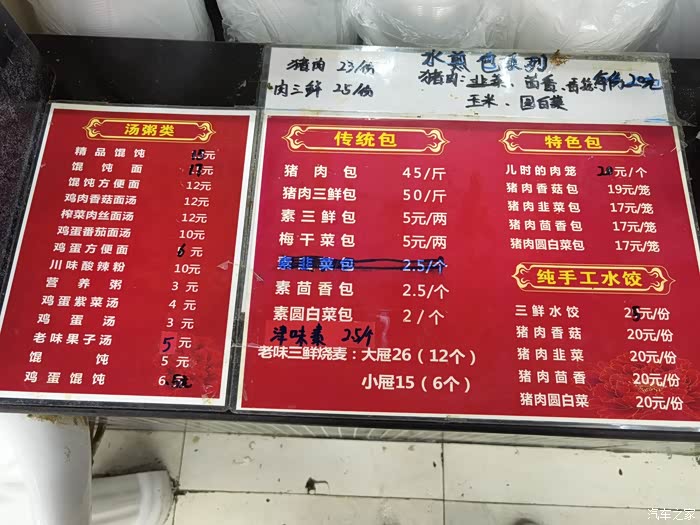 猪肉 23/份
肉三鲜 25/份
水煎包系列
猪肉: 韭菜、茴香、香菇 每份20元
玉米、圆白菜
汤粥类
精品馄饨 15元
馄饨面 元
馄饨方便面 12元
鸡肉香菇面汤 12元
榨菜肉丝面汤 12元
鸡蛋番茄面汤 10元
鸡蛋方便面 6元
川味酸辣粉 10元
营养粥 3元
鸡蛋紫菜汤 4元
鸡蛋汤 3元
老味果子汤 5元
馄饨 5元
鸡蛋馄饨 6.元
传统包
猪肉包 45/斤
猪肉三鲜包 50/斤
素三鲜包 5元/两
梅干菜包 5元/两
素韭菜包 2.5/个
素茴香包 2.5/个
素圆白菜包 2/个
津味素 25/个
老味三鲜烧麦：大屉26（12个）
小屉15（6个）
特色包
儿时的肉笼 20元/个
猪肉香菇包 19元/笼
猪肉韭菜包 17元/笼
猪肉茴香包 17元/笼
猪肉圆白菜包 17元/笼
纯手工水饺
三鲜水饺 25元/份
猪肉香菇 20元/份
猪肉韭菜 20元/份
猪肉茴香 20元/份
猪肉圆白菜 20元/份
汽车之家